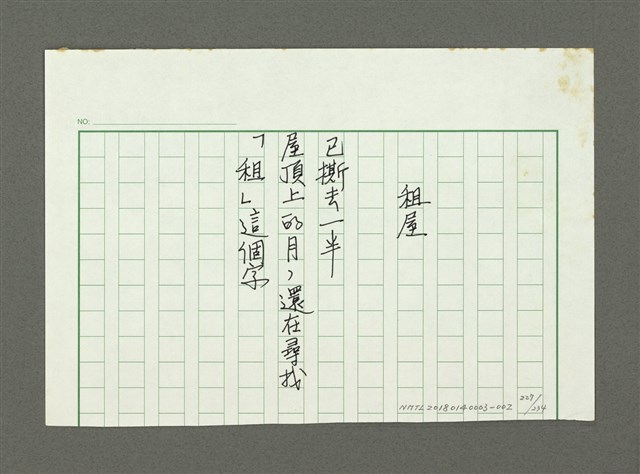 NO:
租屋
已撕去一半
屋頂上的月，還在尋找
「租」這個字
NMTL20180140003-002
227/234